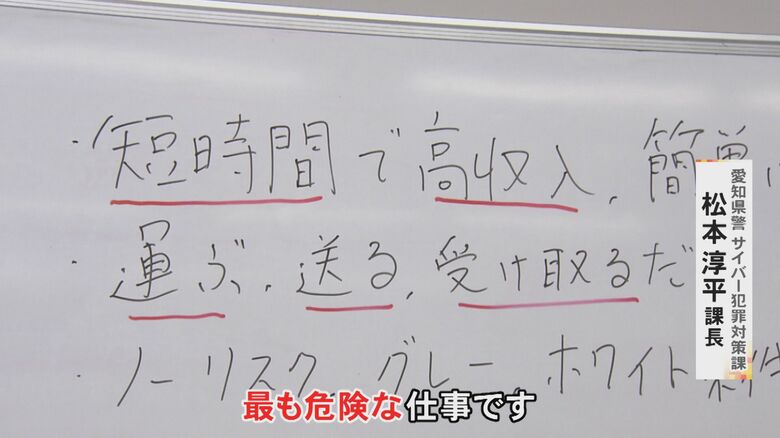 ・短時間で高収入、簡単に
・運ぶ、送る、受け取るだ
・ノーリスク、グレー、ホワイト案件
愛知県警 サイバー犯罪対策課
松本 淳平 課長
最も危険な仕事です